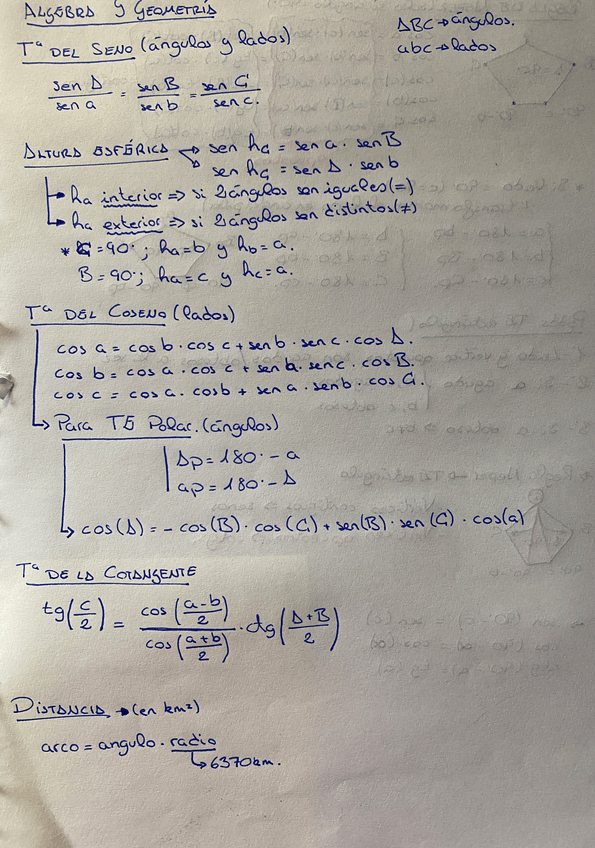 ALGEBRA Y GEOMETRÍA
ABC → ángulos.
abc → lados
Tª DEL SENO (ángulos y lados)
sen A / sen a = sen B / sen b = sen C / sen c.
ALTURA ESFÉRICA → sen hc = sen a · sen B
→ sen hc = sen A · sen b
→ ha interior => si 2 ángulos son iguales (=)
→ ha exterior => si 2 ángulos son distintos (≠)
* C = 90º; ha = b y hb = a.
B = 90º; ha = c y hc = a.
Tª DEL COSENO (lados)
cos a = cos b · cos c + sen b · sen c · cos A.
cos b = cos a · cos c + sen a · sen c · cos B.
cos c = cos a · cos b + sen a · sen b · cos C.
→ Para TE Polar. (ángulos)
Ap = 180º - a
ap = 180º - A
→ cos (A) = - cos (B) · cos (C) + sen (B) · sen (C) · cos (a)
Tª DE LA COTANGENTE
tg (c/2) = cos ((a-b)/2) / cos ((a+b)/2) · ctg ((A+B)/2)
DISTANCIA → (en km²)
arco = angulo · radio
→ 6370 km.